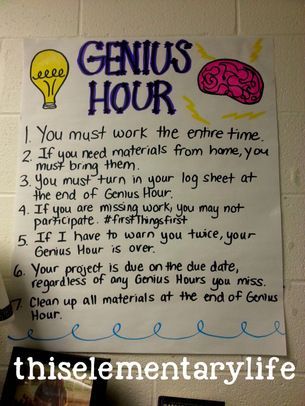 GENIUS
HOUR
1. You must work the entire time.
2. If you need materials from home, you
must bring them.
3. You must turn in your log sheet at
the end of Genius Hour.
4. If you are missing work, you may not
participate. #firstThingsfirst
5. If I have to warn you twice, your
Genius Hour is over.
6. Your project is due on the due date,
regardless of any Genius Hours you miss.
7. Clean up all materials at the end of Genius
Hour.
thiselementarylife